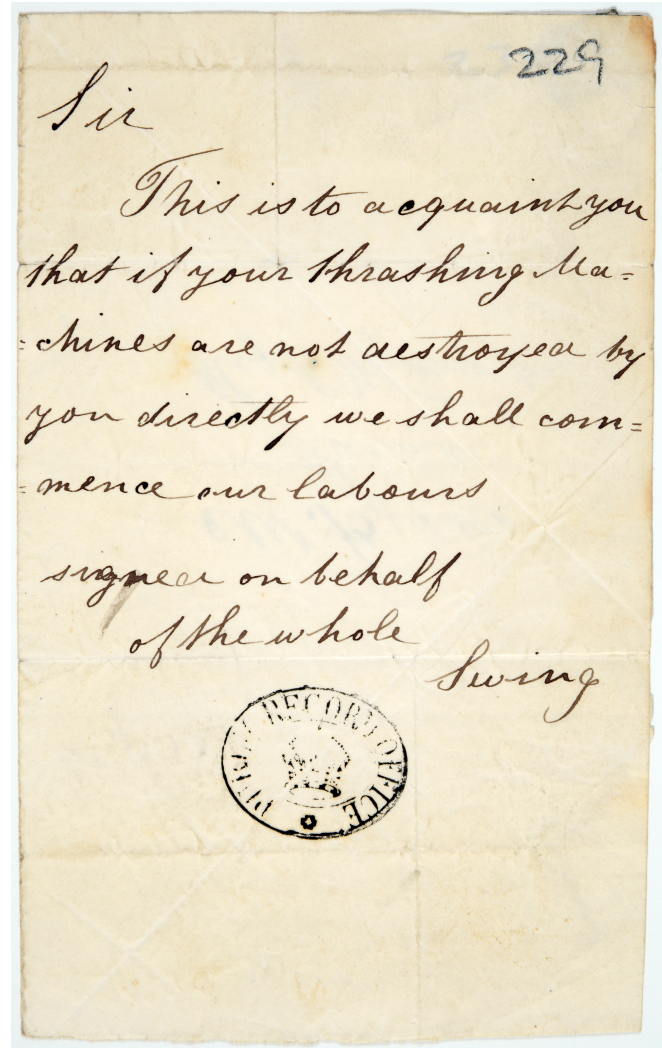 229
Sir
This is to acquaint you
that if your thrashing Ma=
=chines are not destroyed by
you directly we shall com=
=mence our labours
signed on behalf
of the whole
Swing
PUBLIC RECORD OFFICE